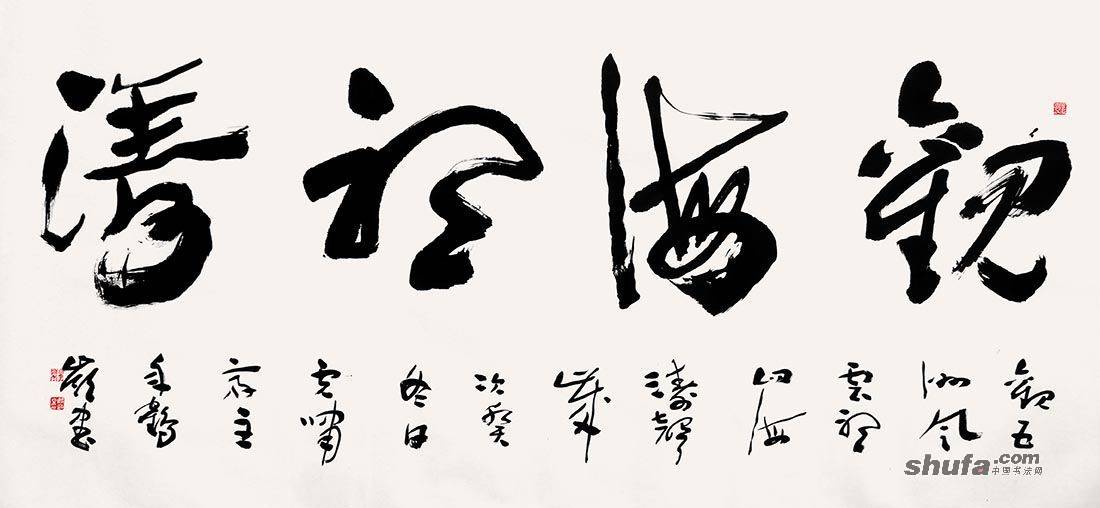 觀海聽濤
觀五
洲風
雲聽
四海
濤聲
歲
次癸
冬日
嘯
齋主
鶴
嶺書
shufa.com
中国书法网